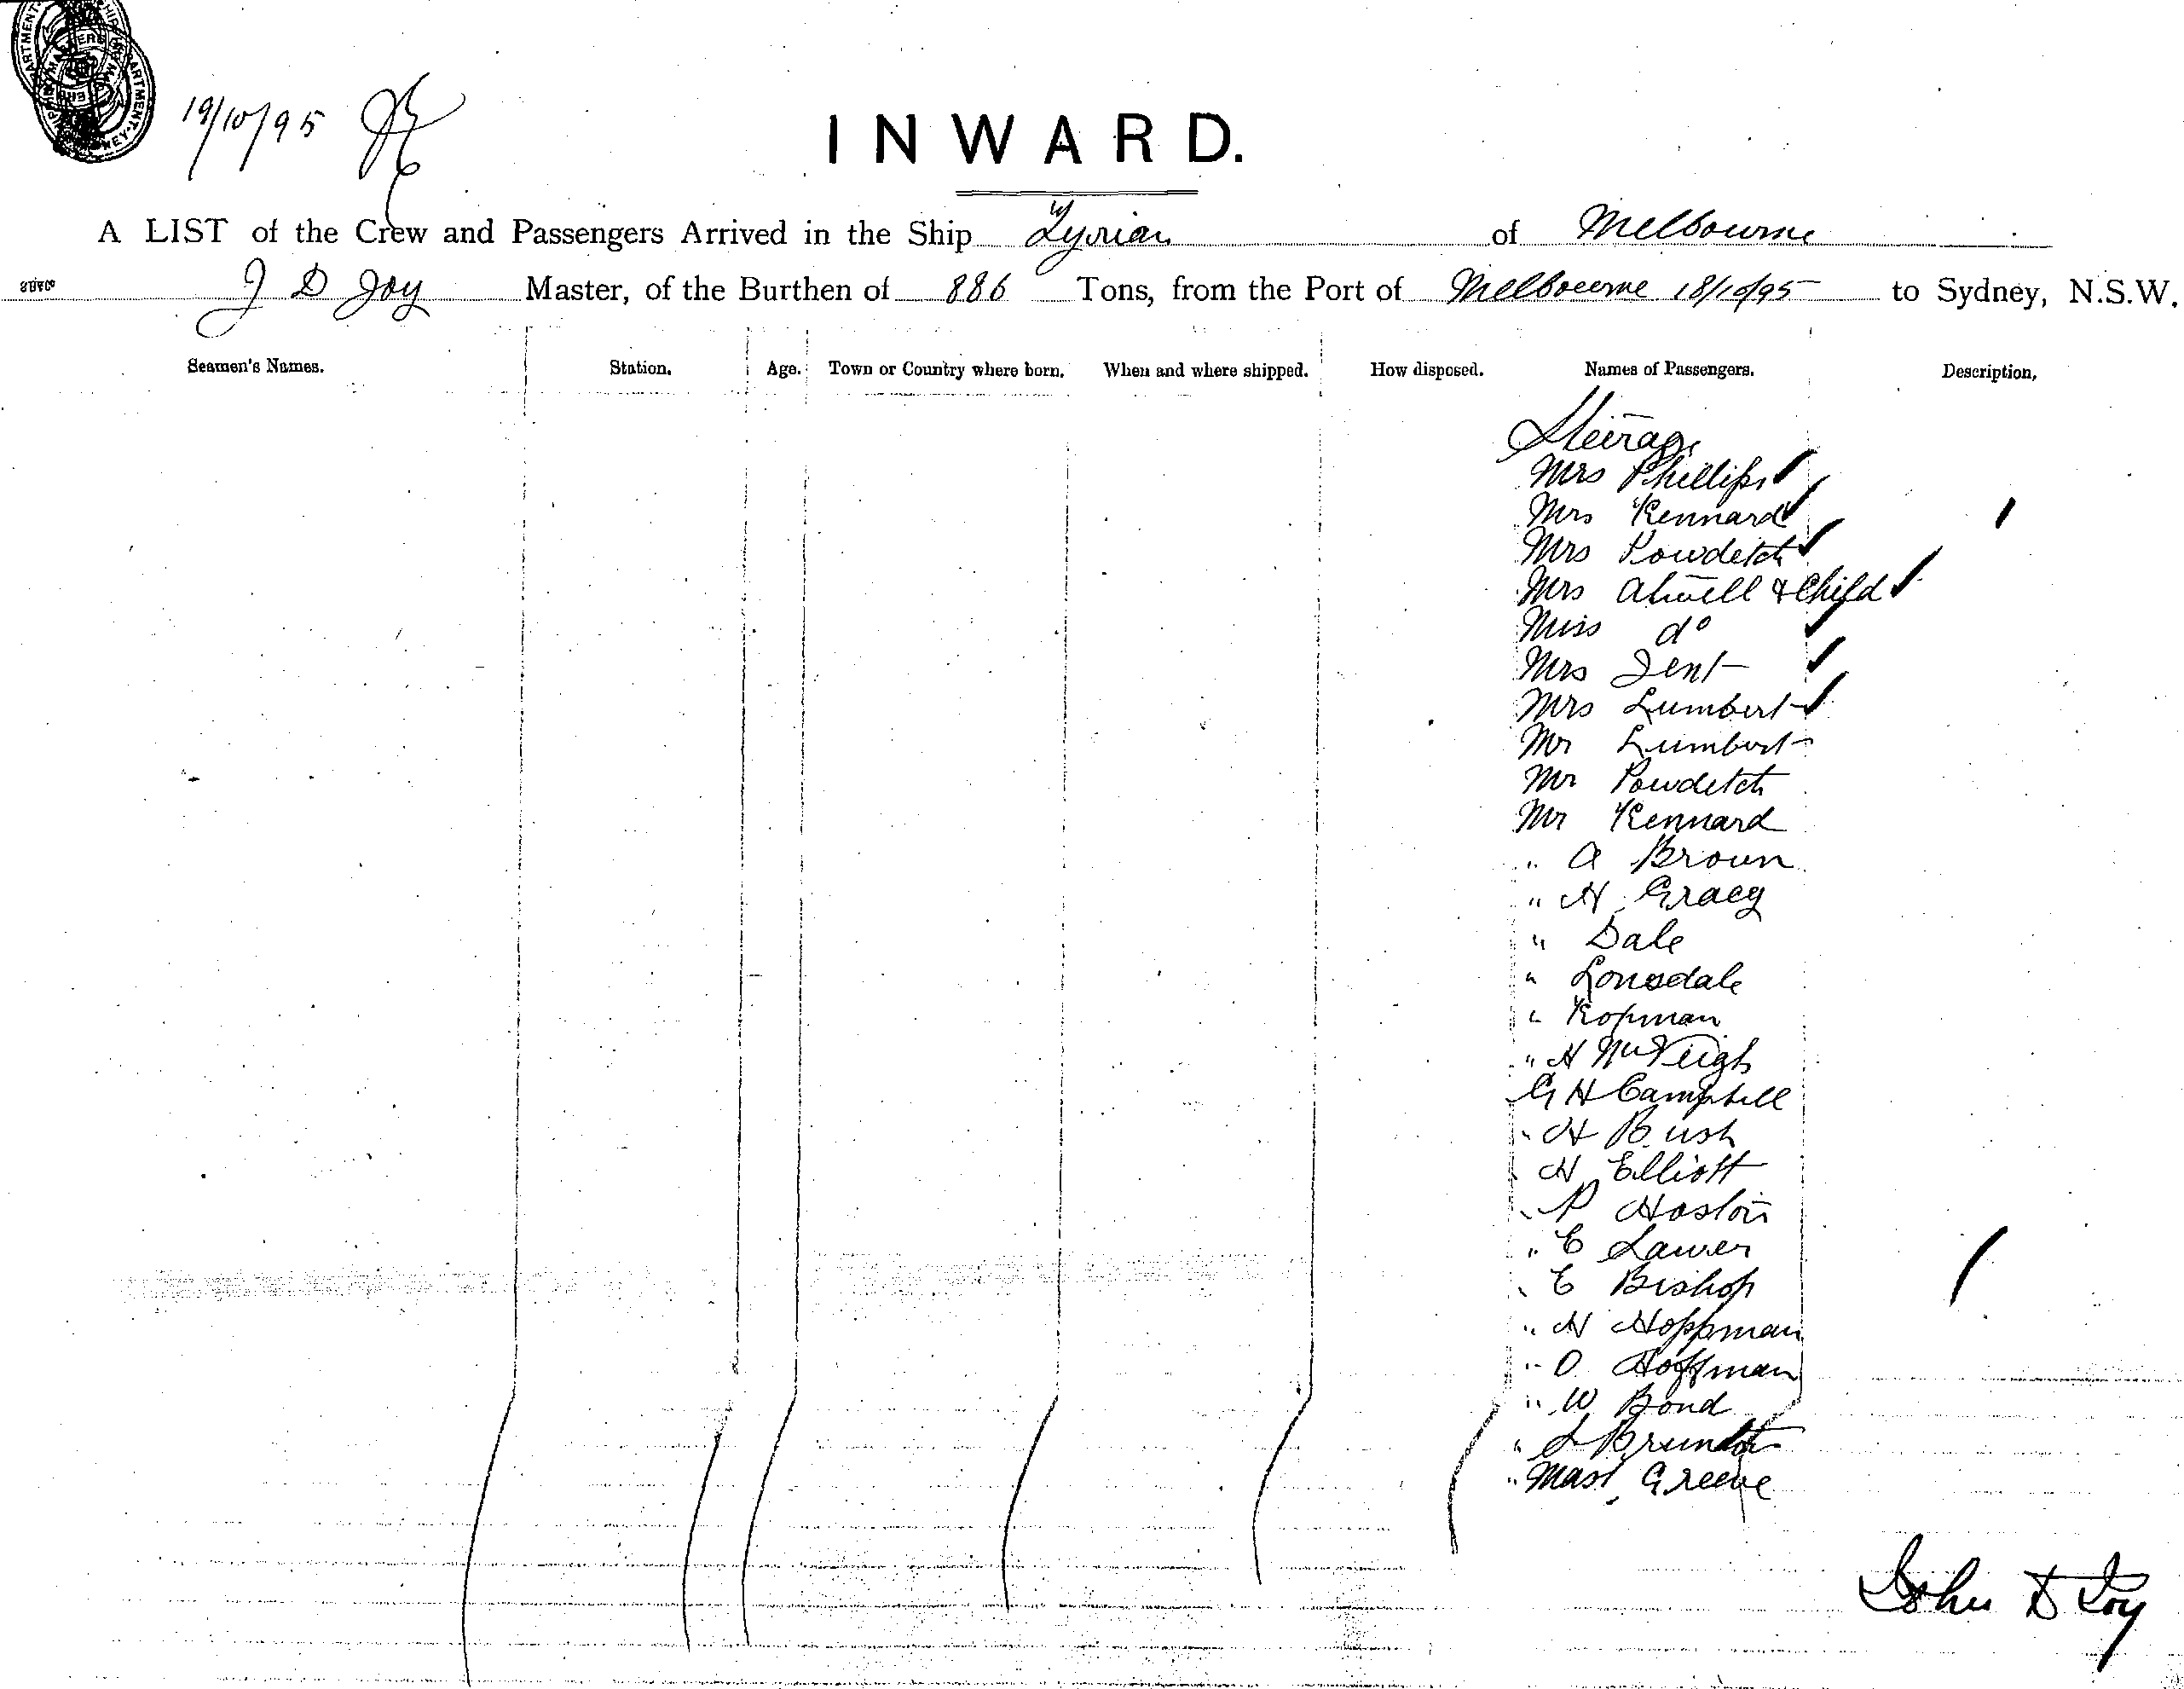 19/10/95
INWARD.
A LIST of the Crew and Passengers Arrived in the Ship Tyrian of Melbourne
J D Joy Master, of the Burthen of 886 Tons, from the Port of Melbourne 18/10/95 to Sydney, N.S.W.
Seamen's Names. Station. Age. Town or Country where born. When and where shipped. How disposed. Names of Passengers. Description,
Steerage
Mrs Phillips
Mrs Kennard
Mrs Powditch
Mrs Atwell & Child
Miss do
Mrs Dent
Mrs Lumbert
Mr Lumbert
Mr Powditch
Mr Kennard
" A Brown
" H Gracy
" Dale
" Lonsdale
" Kopman
" H McVeigh
G H Campbell
" H Bush
H Elliott
" P
" E
" E Bishop
" H Hoppman
" O Hoffman
" W Bond
"
" Mast Greene
John D Joy